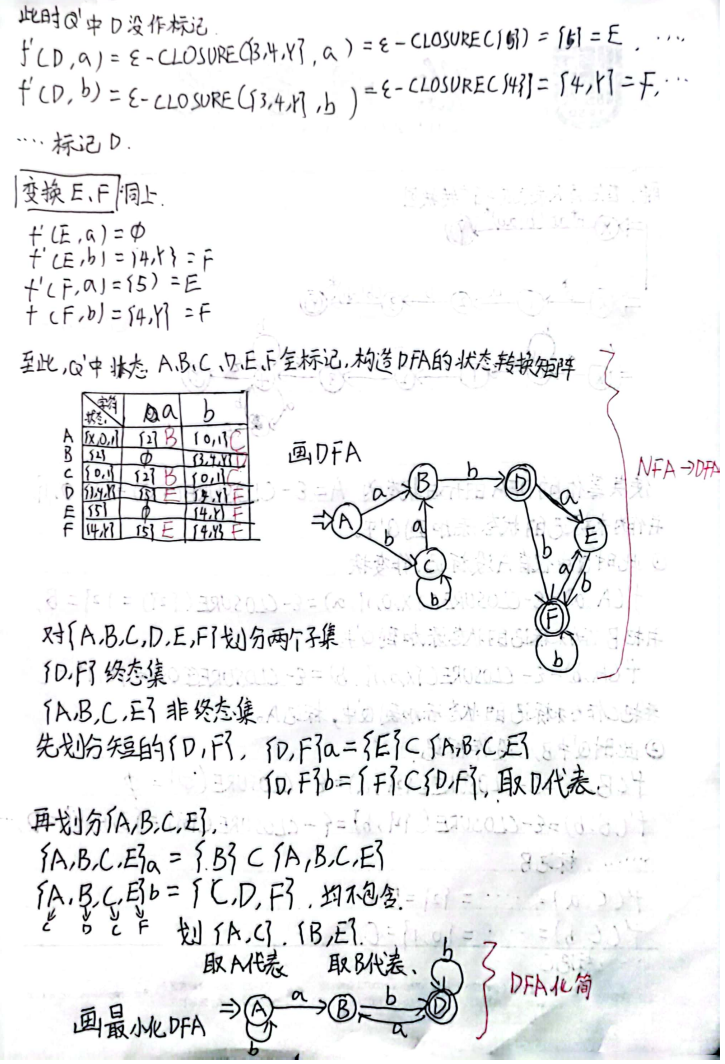 此时Q'中D没作标记.
f'(D,a)=ε-CLOSURE({3,4,Y},a)=ε-CLOSURE({5})={5}=E, ....
f'(D,b)=ε-CLOSURE({3,4,Y},b)=ε-CLOSURE({4})={4,Y}=F, ...
.... 标记D.
变换E、F 同上.
f'(E,a)=∅
f'(E,b)={4,Y}=F
f'(F,a)={5}=E
f'(F,b)={4,Y}=F
至此,Q'中状态A,B,C,D,E,F全标记,构造DFA的状态转换矩阵
字符 状态 a b
A {X,0,1} {2} B {0,1} C
B {2} ∅ {3,4,Y} D
C {0,1} {2} B {0,1} C
D {3,4,Y} {5} E {4,Y} F
E {5} ∅ {4,Y} F
F {4,Y} {5} E {4,Y} F
画DFA
⇒ A a B b D a E
b C a b b a b F b
NFA→DFA
对{A,B,C,D,E,F}划分两个子集
{D,F}终态集
{A,B,C,E}非终态集
先划分短的{D,F}, {D,F}a={E}⊂{A,B,C,E}
{D,F}b={F}⊂{D,F}, 取D代表.
再划分{A,B,C,E},
{A,B,C,E}a={B}⊂{A,B,C,E}
{A,B,C,E}b={C,D,F}, 均不包含.
C D C F
划{A,C}, {B,E}.
取A代表 取B代表.
画最小化DFA
⇒ A a B b D b
b a
DFA化简